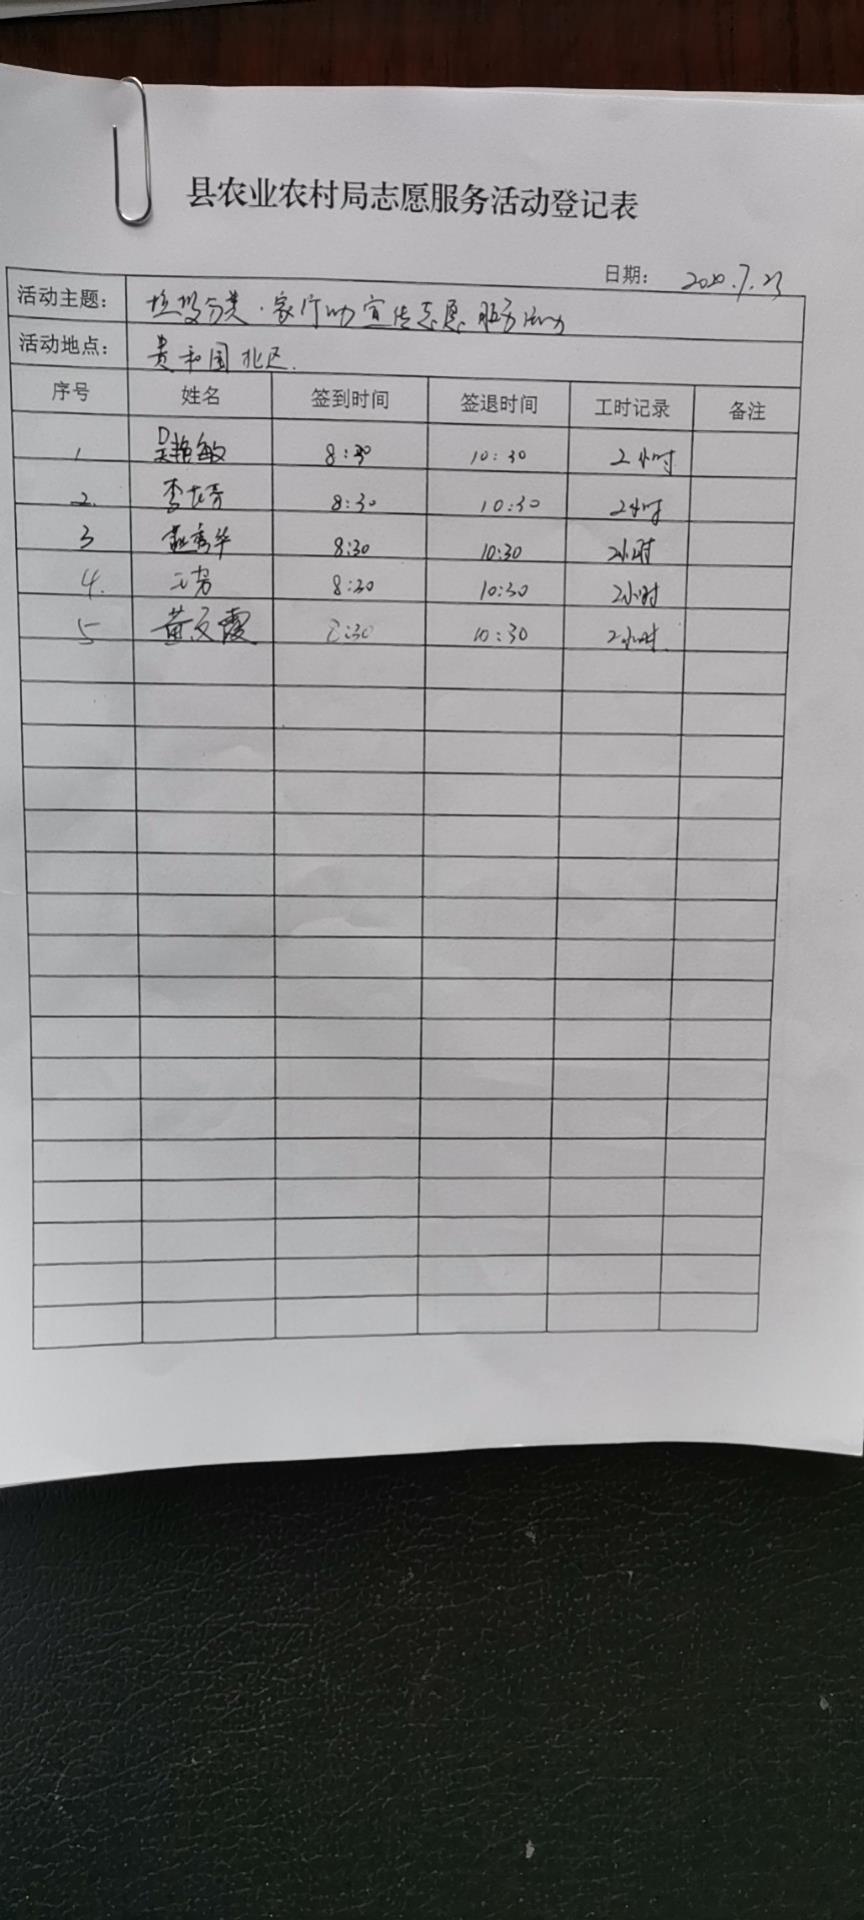 县农业农村局志愿服务活动登记表
日期： 2020.7.23
活动主题： 垃圾分类·家庭动宣传志愿服务活动
活动地点： 贵和园北区.
序号 姓名 签到时间 签退时间 工时记录 备注
1 吴艳敏 8:30 10:30 2小时
2. 李 8:30 10:30 2小时
3 赵秀华 8:30 10:30 2小时
4. 8:30 10:30 2小时
5 黄文霞 8:30 10:30 2小时.